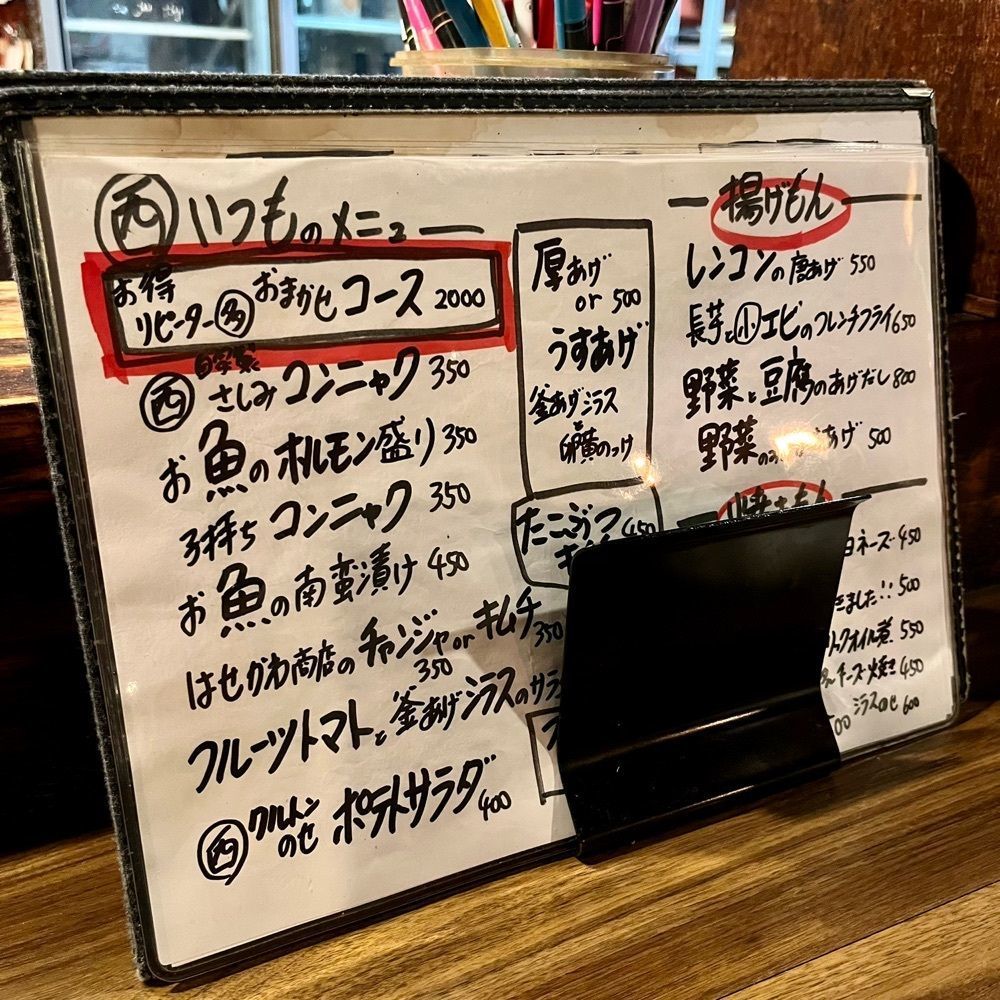 西 いつものメニュー
お得 リピーター多 おまかせコース 2000
西 自家製 さしみコンニャク 350
お魚のホルモン盛り 350
子持ちコンニャク 350
お魚の南蛮漬け 450
はせがわ商店のチャンジャorキムチ 350
350
フルーツトマトと釜あげシラスのサラ
西 クルトンのせ ポテトサラダ 400
厚あげ
or 500
うすあげ
釜あげシラス
と
卵黄のっけ
たこぶつ
450
揚げもん
レンコンの唐あげ 550
長芋と小エビのフレンチフライ 650
野菜と豆腐のあげだし 800
野菜の あげ 500
焼きもん
ヨネーズ 450
きました!! 500
オイル煮 550
チーズ焼き 450
シラスのせ 600